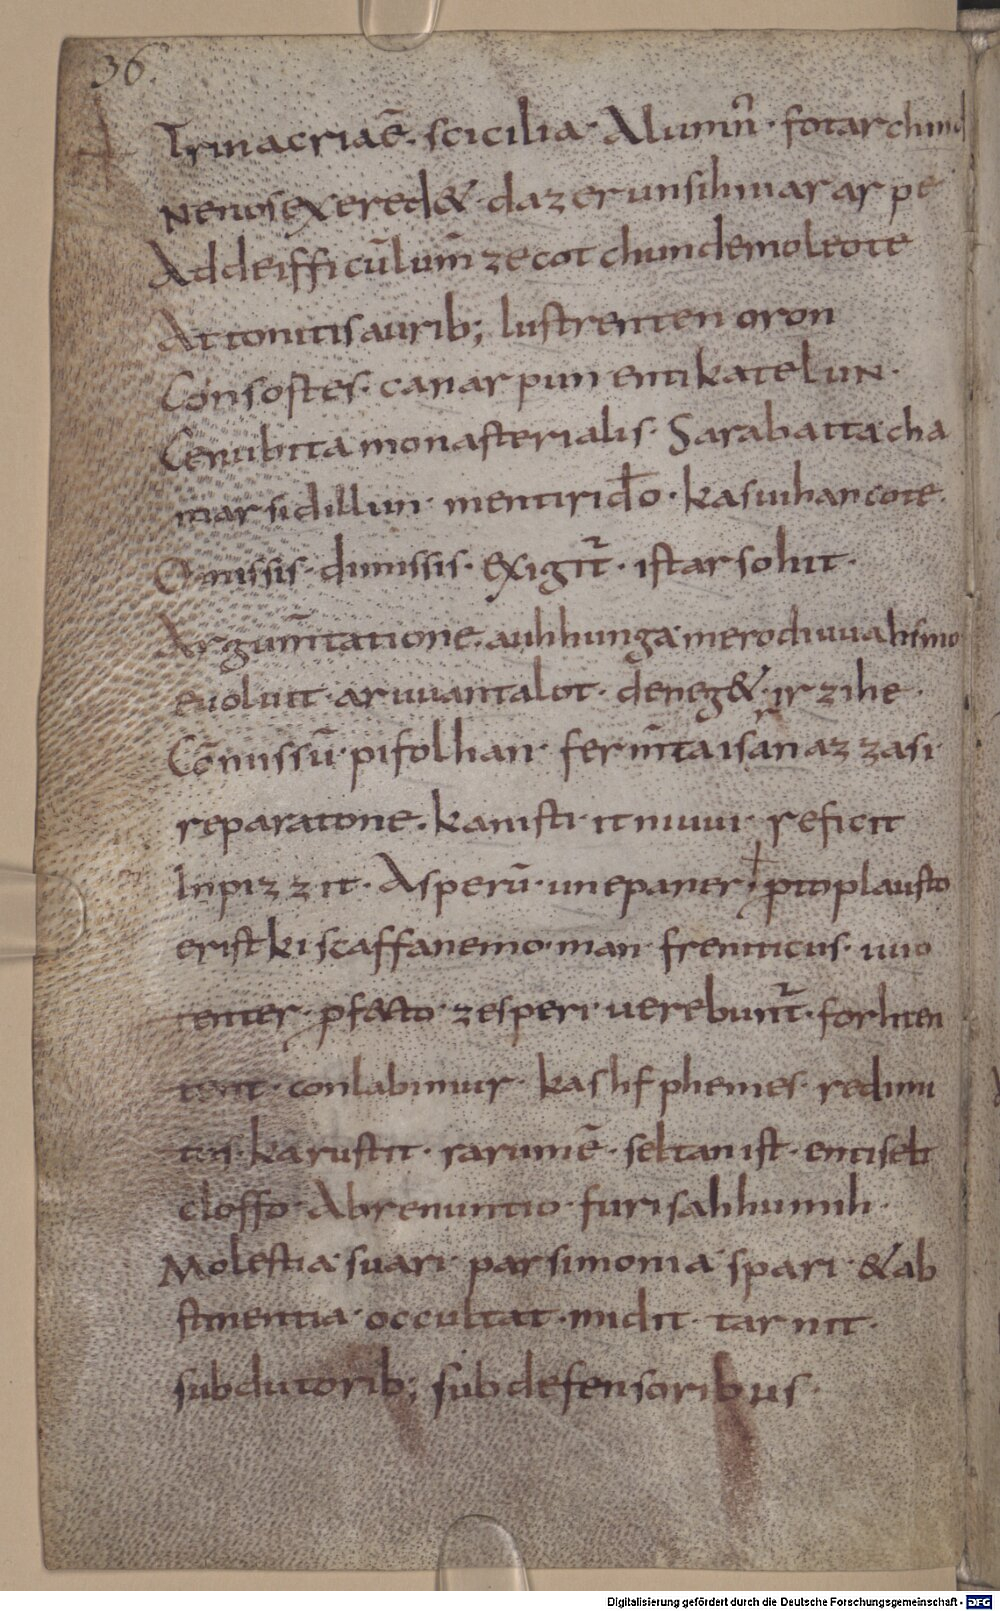 36.
Trinacriaē. scicilia. Alumn̄. fotarchind
Ne nos exered&. daz er unsih ni ar ar pe
Ad deifficū lum̄ ze cot chundemo leote
Attonitis aurib; lustrenten oron
Consostes. canarpun entikatelun.
Cenubita monasterialis. Sarabaita cha
mar sidillun. mentiri dō. kasuihan cote.
Omissis. dimissis. Exigit̄. istarsohit.
Argum̄tatione. auhhunga. mero diu uahsmo
evoluit. aruuantalot. deneg&. ir zihe.
Cōmissū. pifolhan. ferm̄ta isan̄ azzasi.
reparatone. kanisti. it niuui. reficit
Inpizzit. Asperū. unepaner. ptoplausto
erist kiscaffanemo. man. freniticus. uuo
tenter. pfecto. zesperi. uerebunt̄. forhten
tent. conlabimur. kaslifphemes. redimi
tus. karustit. rarumē. seltan ist. enti selt
cloffo. Abrenuntio. furisahhu mih.
Molestia. suari. parsimonia. spari. & ab
stinentia. occultat. midit. tarnit.
subdutorib; sub defensoribus.
Digitalisierung gefördert durch die Deutsche Forschungsgemeinschaft - DFG